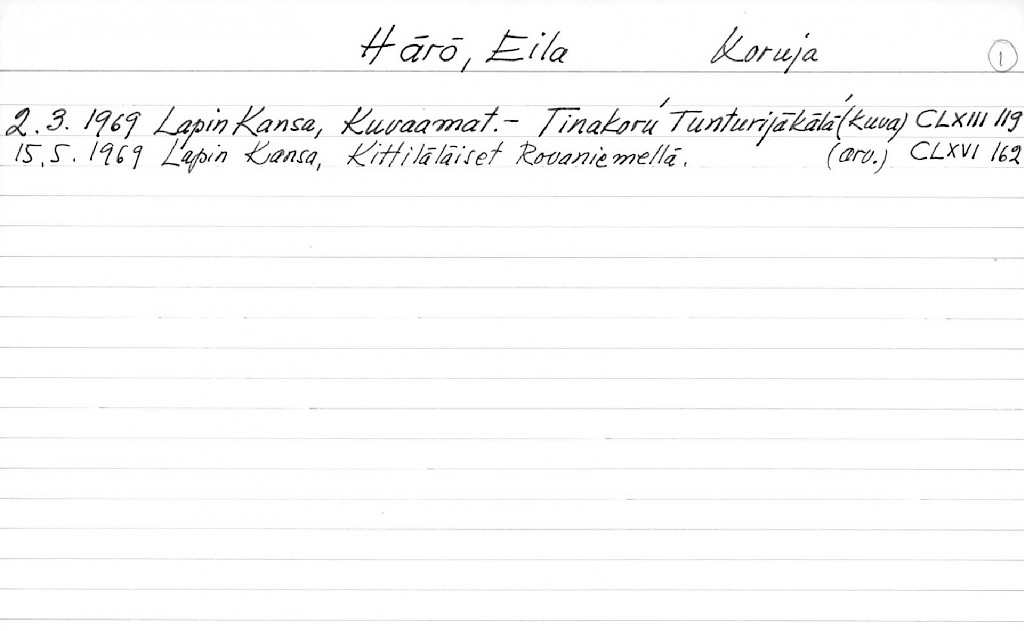 Härö, Eila Koruja 1
2.3. 1969 Lapin Kansa, Kuvaamat.- Tinakoru 'Tunturijäkälä' (kuva) CLXIII 119
15.5. 1969 Lapin Kansa, Kittiläläiset Rovaniemellä. (arv.) CLXVI 162